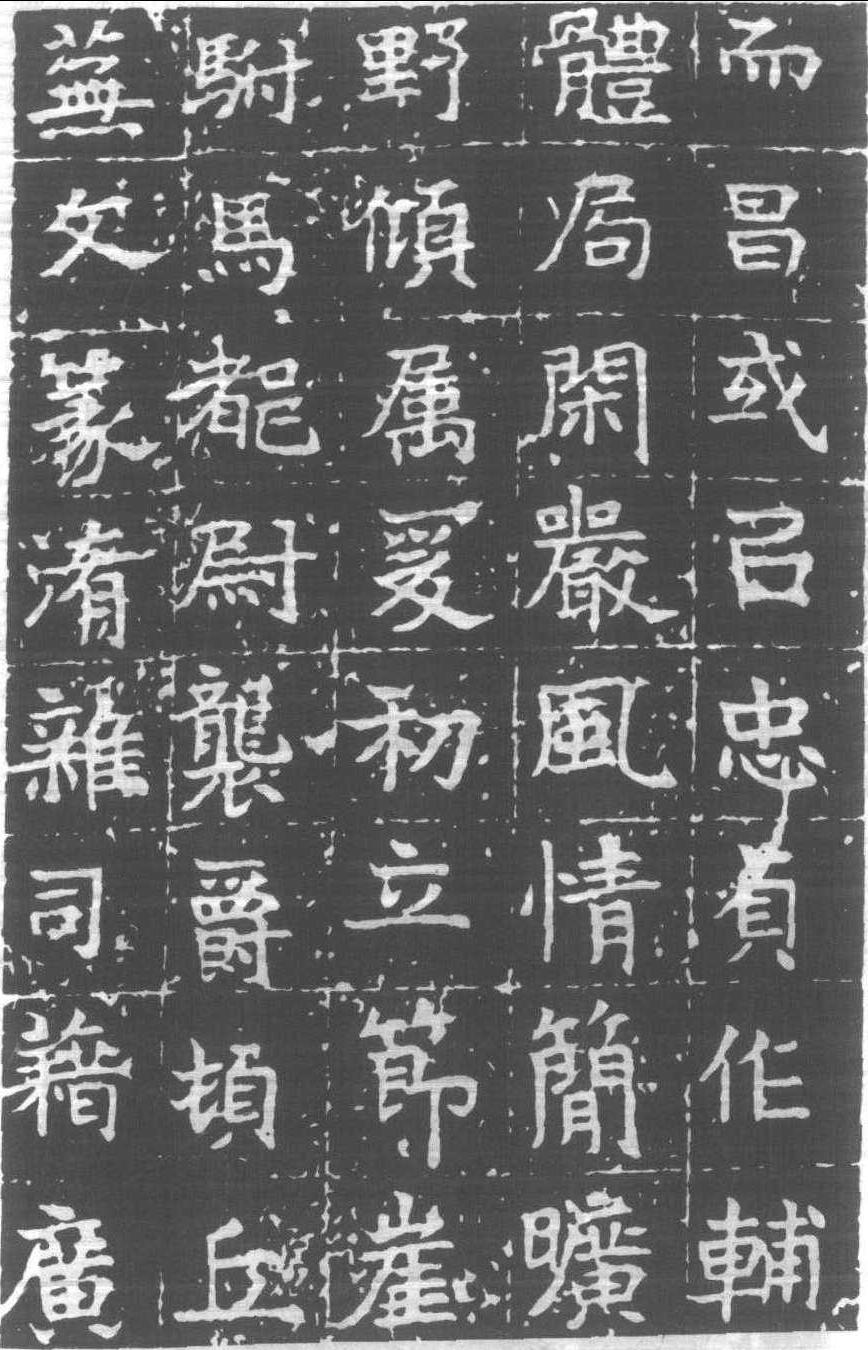 而昌或召忠貞作輔
體局閑嚴風情簡曠
野傾属爰初立節崖
駙馬都尉襲爵頓丘
蕪文篆淆雜司藉廣